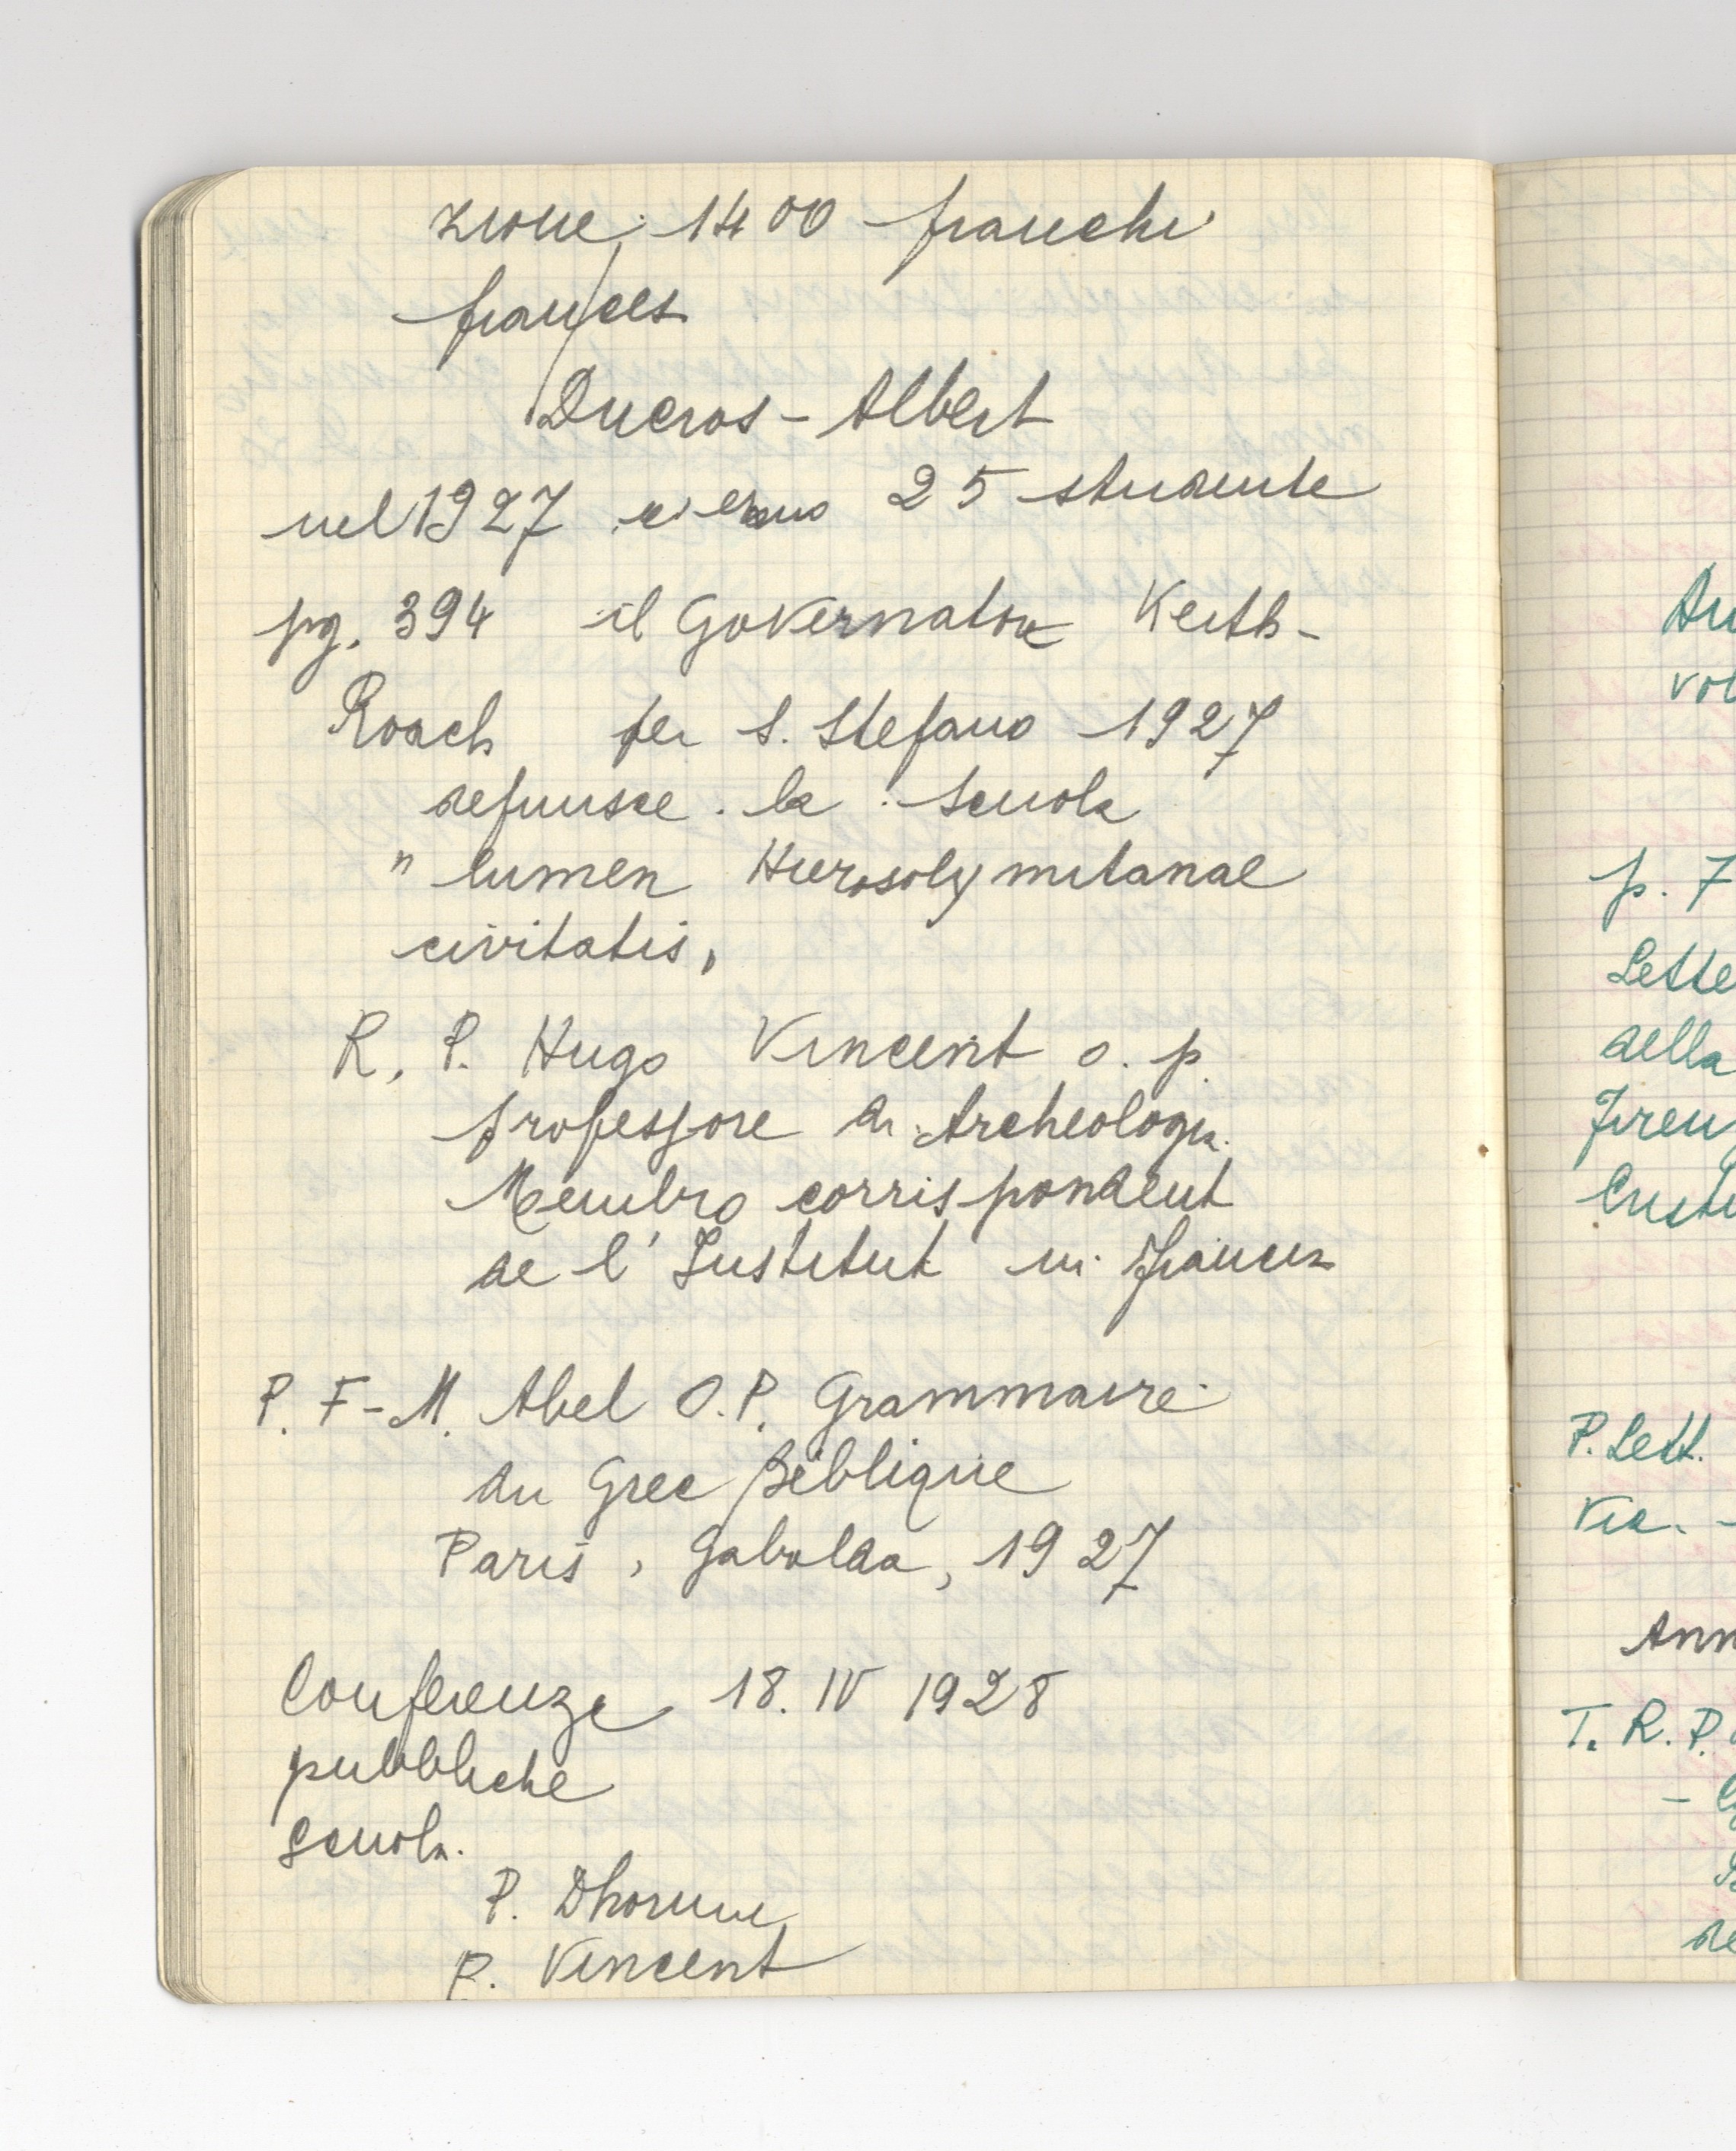 zione: 1400 franchi
frances
Ducros - Albert
nel 1927 c'erano 25 studente
pg. 394 il Governatore Keith-
Roach per S. Stefano 1927
definisce la scuola
" lumen Hierosolymitanae
civitatis,
R. P. Hugo Vincent o. p.
professore di Archeologia
Membro corrispondent
de l'Institut in Francia
P. F-M. Abel O.P. Grammaire
du Grec Biblique
Paris, Gabalda, 1927
Conferenze 18. IV 1928
pubbliche
scuola.
P. Dhorme
P. Vincent
Au
vol
p. 7
Lette
della
Firen
Cust
P. Lett.
Vic. -
Ann
T. R. P.
de